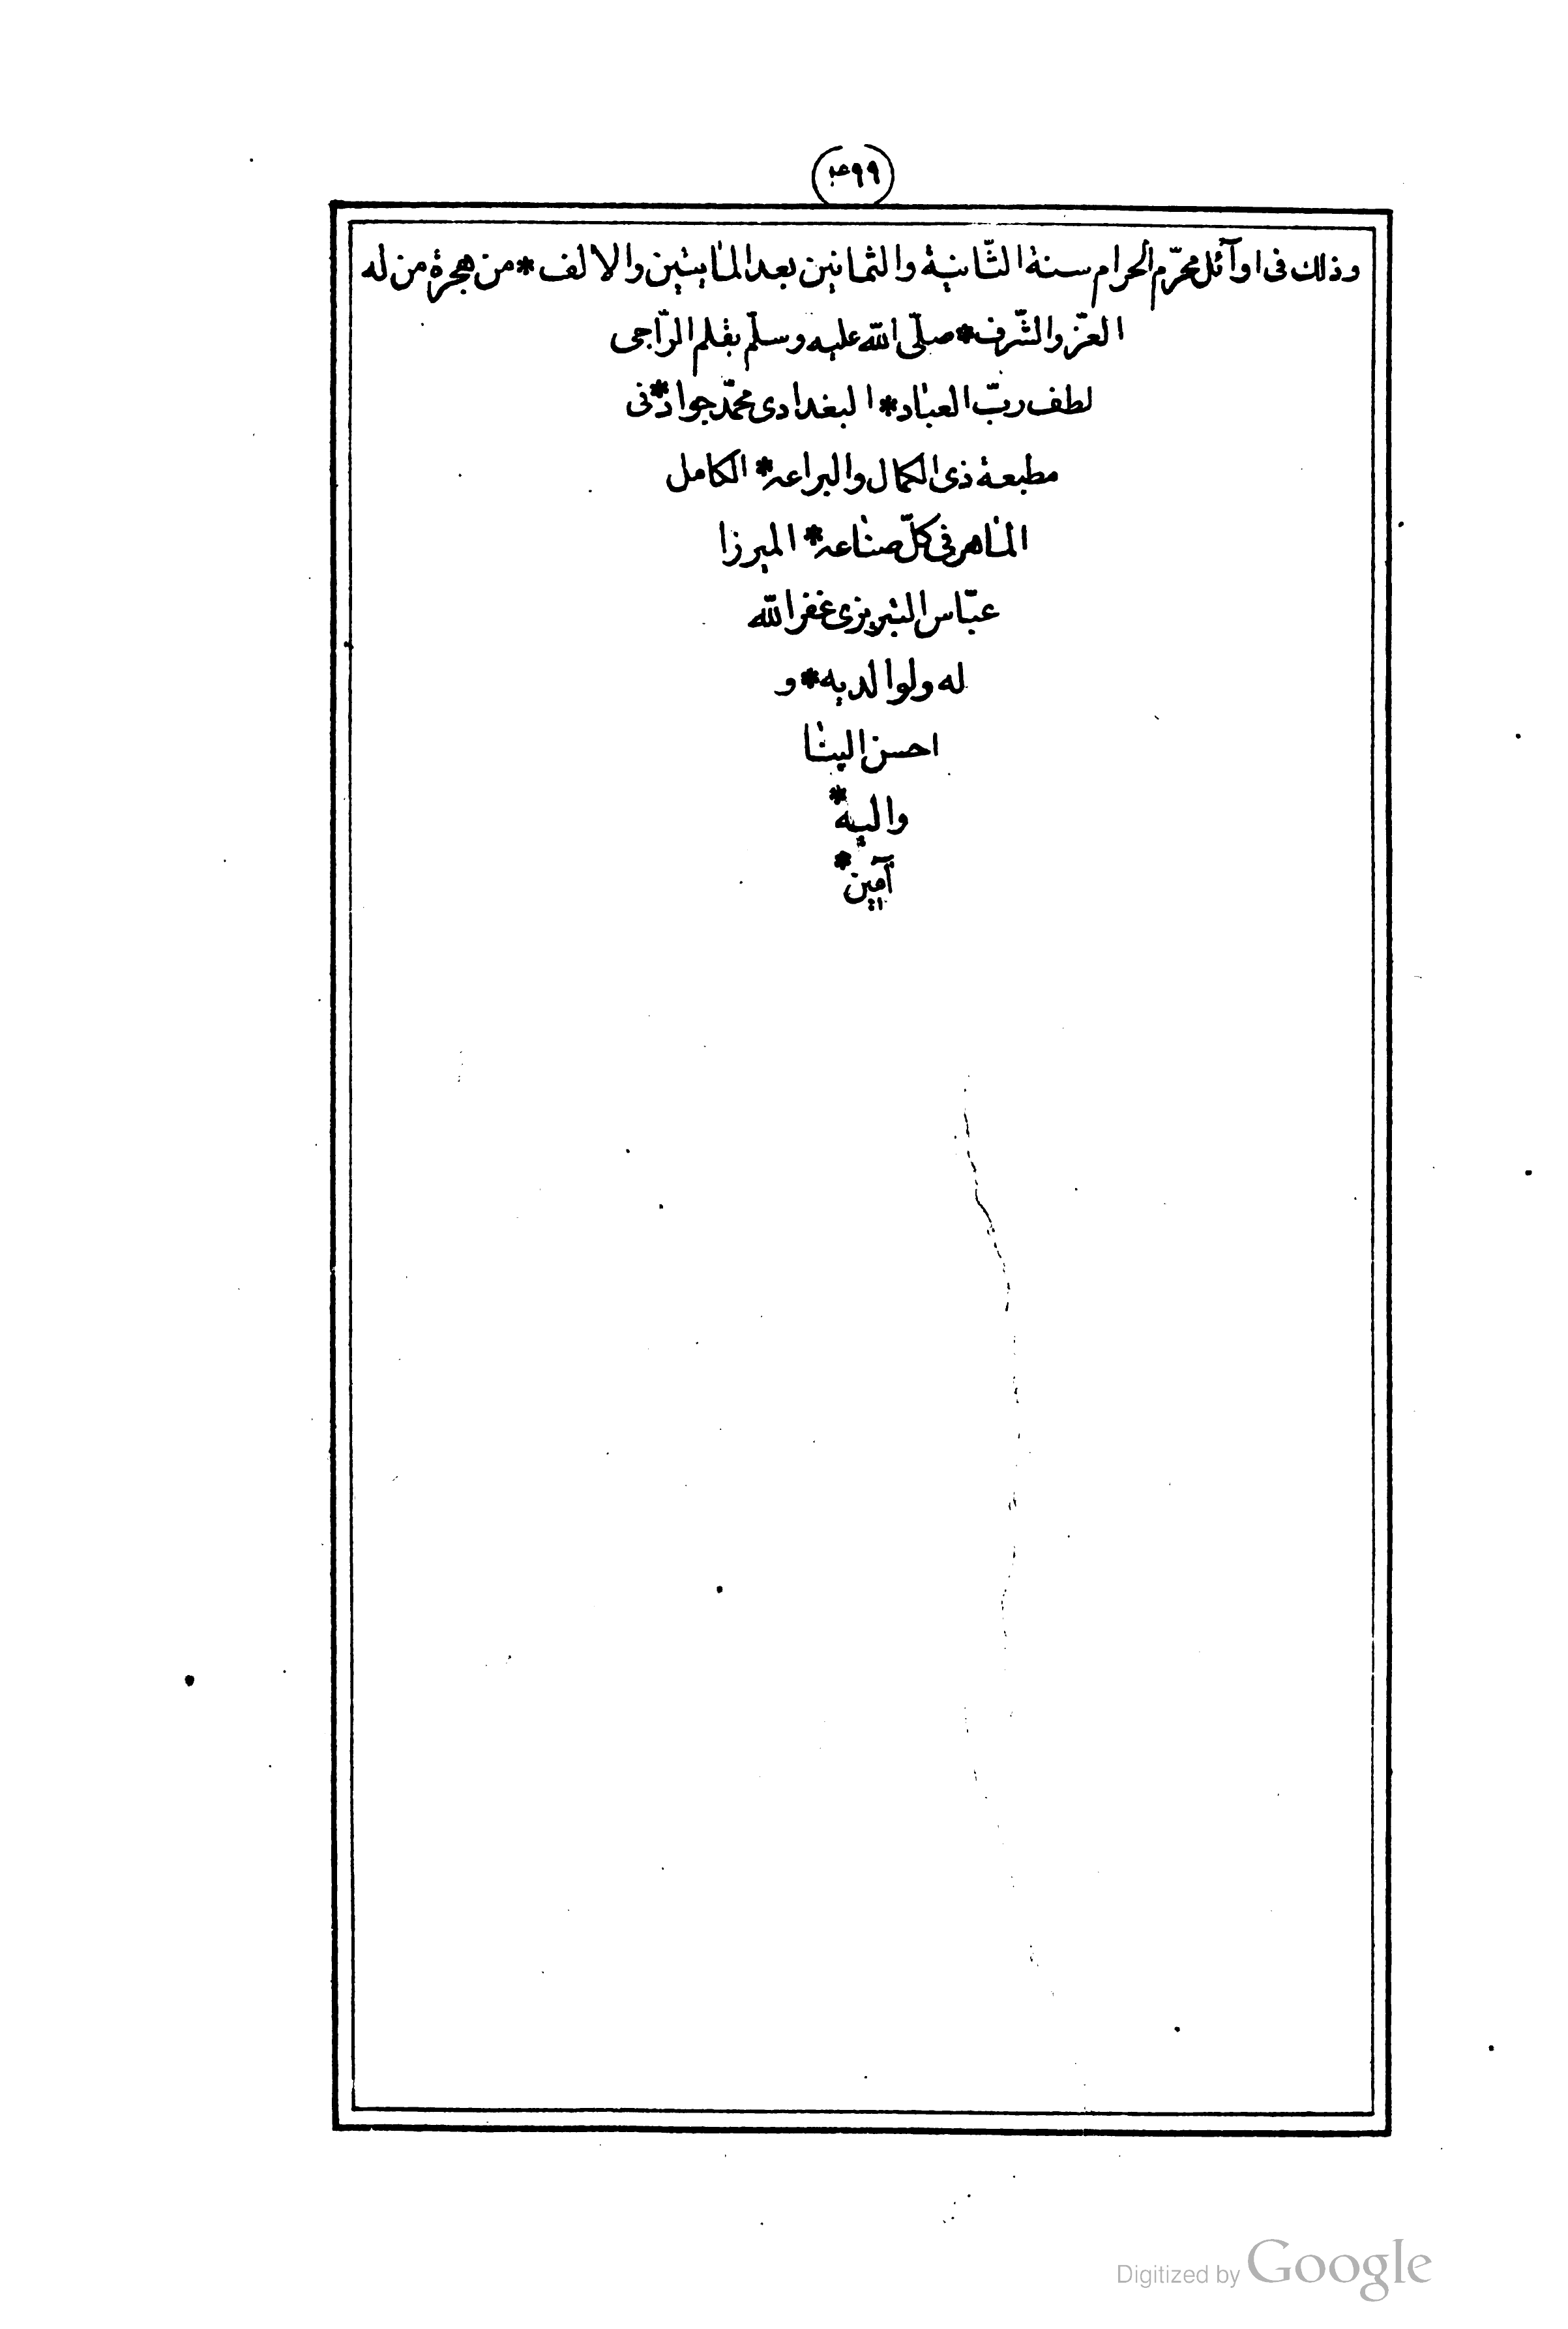 (۴۹۹)
وذلك فى اوآئل محرّم الحرام سنة الثّانية والثمانين بعد المأيتين والالف * من هجرة من له
العزّ والشّرف * صلّى الله عليه وسلّم بقلم الرّاجى
لطف ربّ العباد * البغدادى محمّد جواد * فى
مطبعة ذى الكمال والبراعه * الكامل
الماهر فى كلّ صناعه * الميرزا
عبّاس التبريزى غفر الله
له ولوالديه * و
احسن الينا
واليه *
آمين *
Digitized by Google